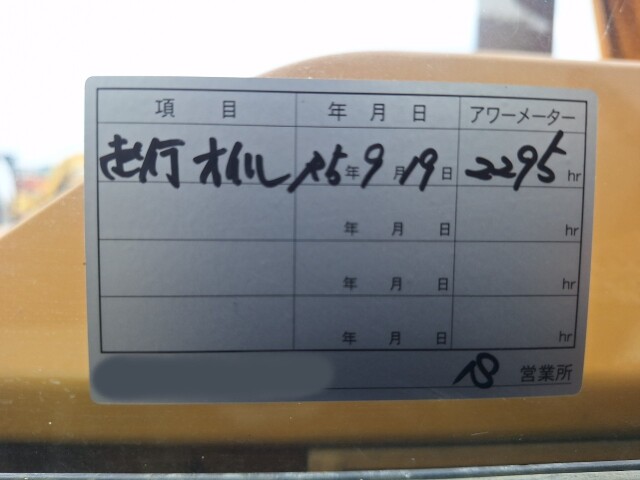 項目 年月日 アワーメーター
走行オイル R5年9月19日 2295hr
年月日 hr
年月日 hr
年月日 hr
営業所